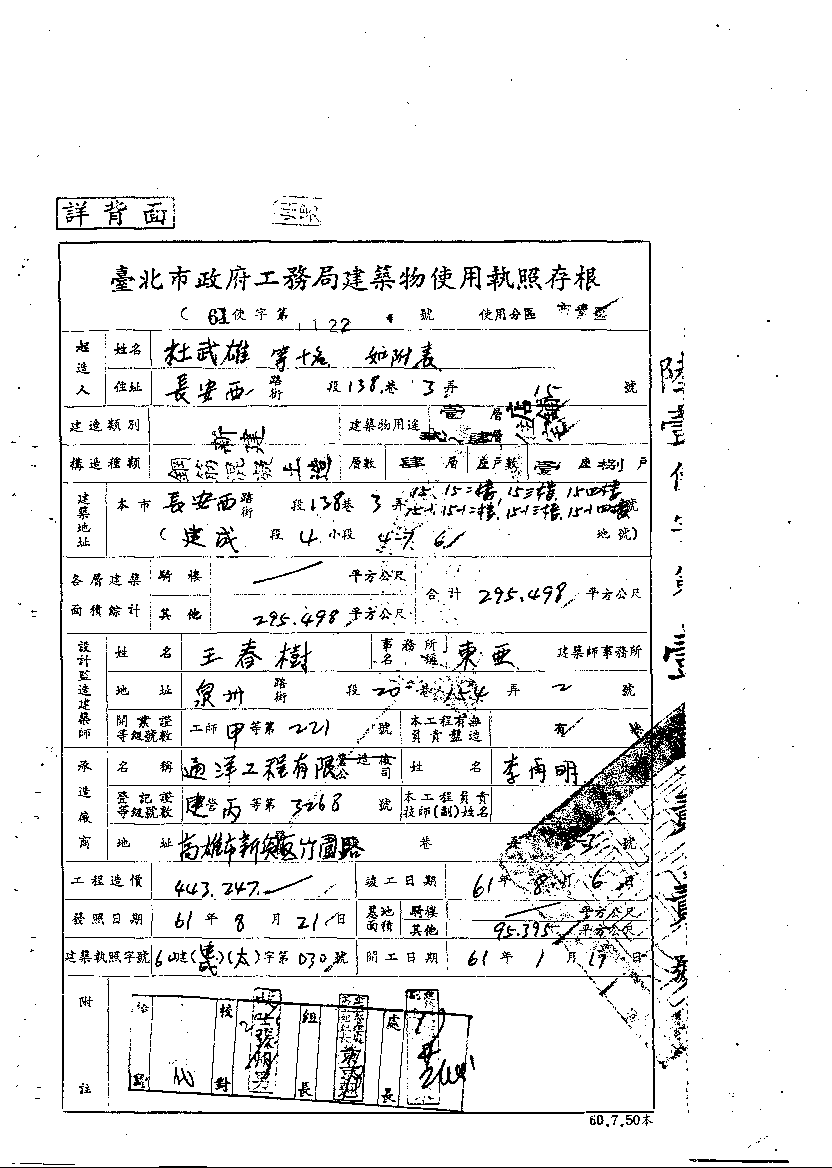 詳背面
臺北市政府工務局建築物使用執照存根
( 61使字第 1122 號 使用分區 商業區
起造人 姓名 杜武雄 等十名 如附表
住址 長安西 路街 段138巷 3弄 15 號
建造類別 新建 建築物用途 壹層 店舖
構造種類 鋼筋混凝土造 層數 肆層 座戶數 壹座捌戶
建築地址 本市 長安西 路街 段138巷 3弄 15, 15二樓, 15三樓, 15四樓 號
15-1, 15-1二樓, 15-1三樓, 15-1四樓
( 建成 段 4 小段 4-7, 6 地號)
各層建築面積綜計 騎樓 平方公尺 合計 295.498 平方公尺
其他 295.498 平方公尺
設計監造建築師 姓名 王春樹 事務所名稱 東亞 建築師事務所
地址 泉州 路街 段 20 巷 154 弄 2 號
開業證等級號數 工師甲等第 221 號 本工程有無負責監造 有
承造廠商 名稱 通洋工程有限公司 姓名 李再明
登記證等級號數 建營丙等第 3268 號 本工程負責技師(副)姓名
地址 高雄市新興區竹圍路 巷 弄 號
工程造價 443,247 竣工日期 61年 8月 6日
發照日期 61年 8月 21日 基地面積 騎樓 平方公尺
其他 95.395 平方公尺
建築執照字號 60建(太)字第 030 號 開工日期 61年 1月 17日
附註 校對 組長 處長
60.7.50本